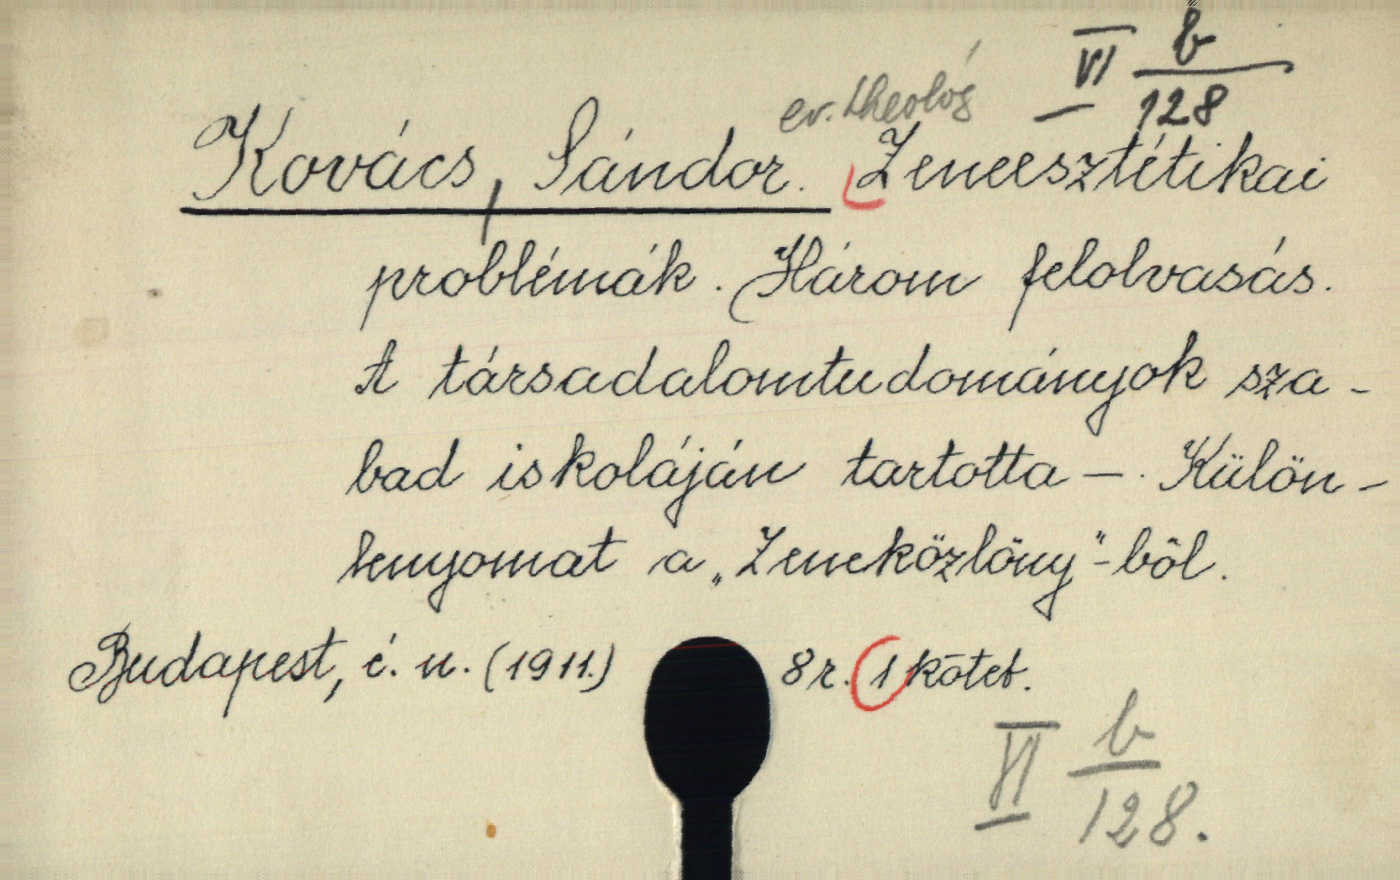 VI b/128
ev. theológ
Kovács, Sándor. Zeneesztétikai
problémák. Három felolvasás.
A társadalomtudományok sza-
bad iskoláján tartotta —. Külön-
lenyomat a „Zeneközlöny"-ből.
Budapest, é. n. (1911.) 8r. 1 kötet.
VI b/128.